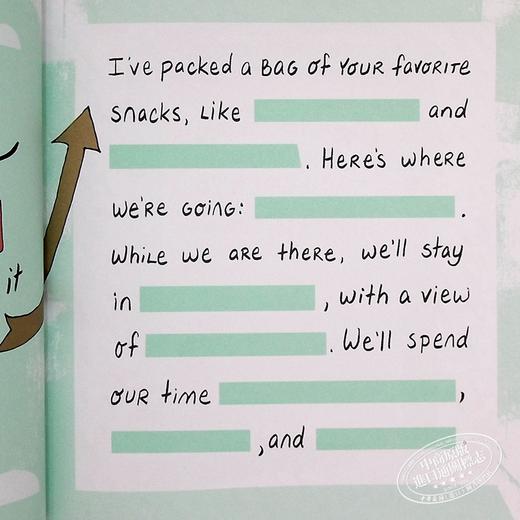 I've packed a BAG of YOUR favorite
snacks, like and
. Here's where
we're going: .
While we are there, we'll stay
in , with a view
of . We'll spend
our time ,
, and
it
中商原版
进口通关标志